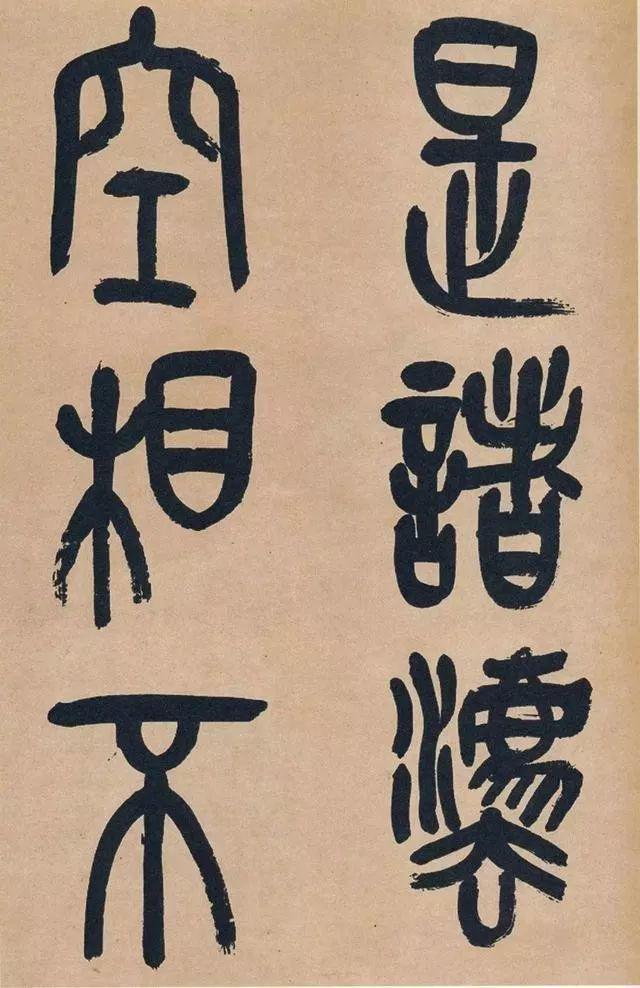 是諸灋
空相不